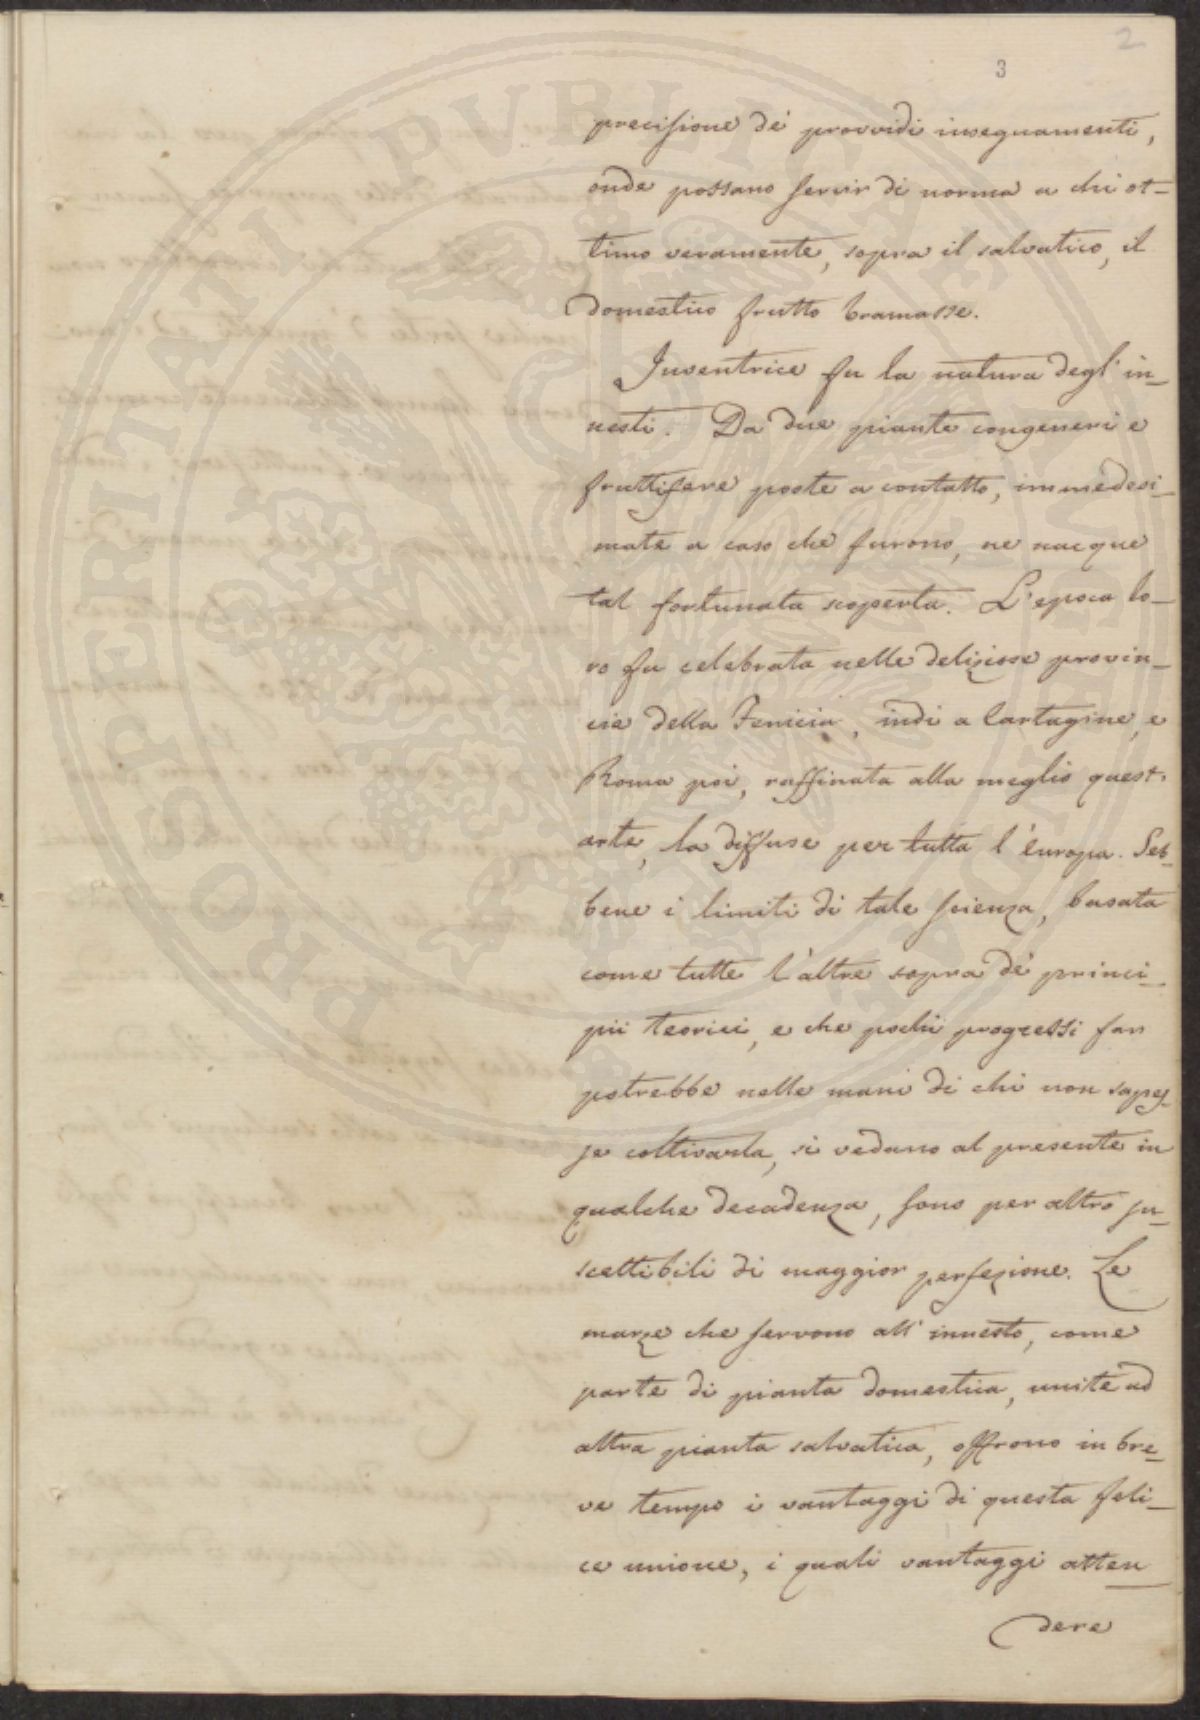 2
3
precisione de' provvidi insegnamenti,
onde possano servir di norma a chi ot-
timo veramente, sopra il salvatico, il
domestico frutto bramasse.
Inventrice fu la natura degl' in-
nesti. Da due piante congeneri e
fruttifere poste a contatto, immedesi-
mate a caso che furono, ne nacque
tal fortunata scoperta. L'epoca lo-
ro fu celebrata nelle deliziose provin-
cie della Fenicia, indi a Cartagine, e
Roma poi, raffinata alla meglio quest'
arte, la diffuse per tutta l'Europa. Seb-
bene i limiti di tale scienza, basata
come tutte l'altre sopra de' princi-
pii teorici, e che pochi progressi far
potrebbe nelle mani di chi non sapes-
se coltivarla, si vedano al presente in
qualche decadenza, sono per altro su-
scettibili di maggior perfezione. Le
marze che servono all' innesto, come
parte di pianta domestica, unite ad
altra pianta salvatica, offrono in bre-
ve tempo i vantaggi di questa feli-
ce unione, i quali vantaggi atten
dere
PROSPERITATI PVBLICAE AVGENDAE